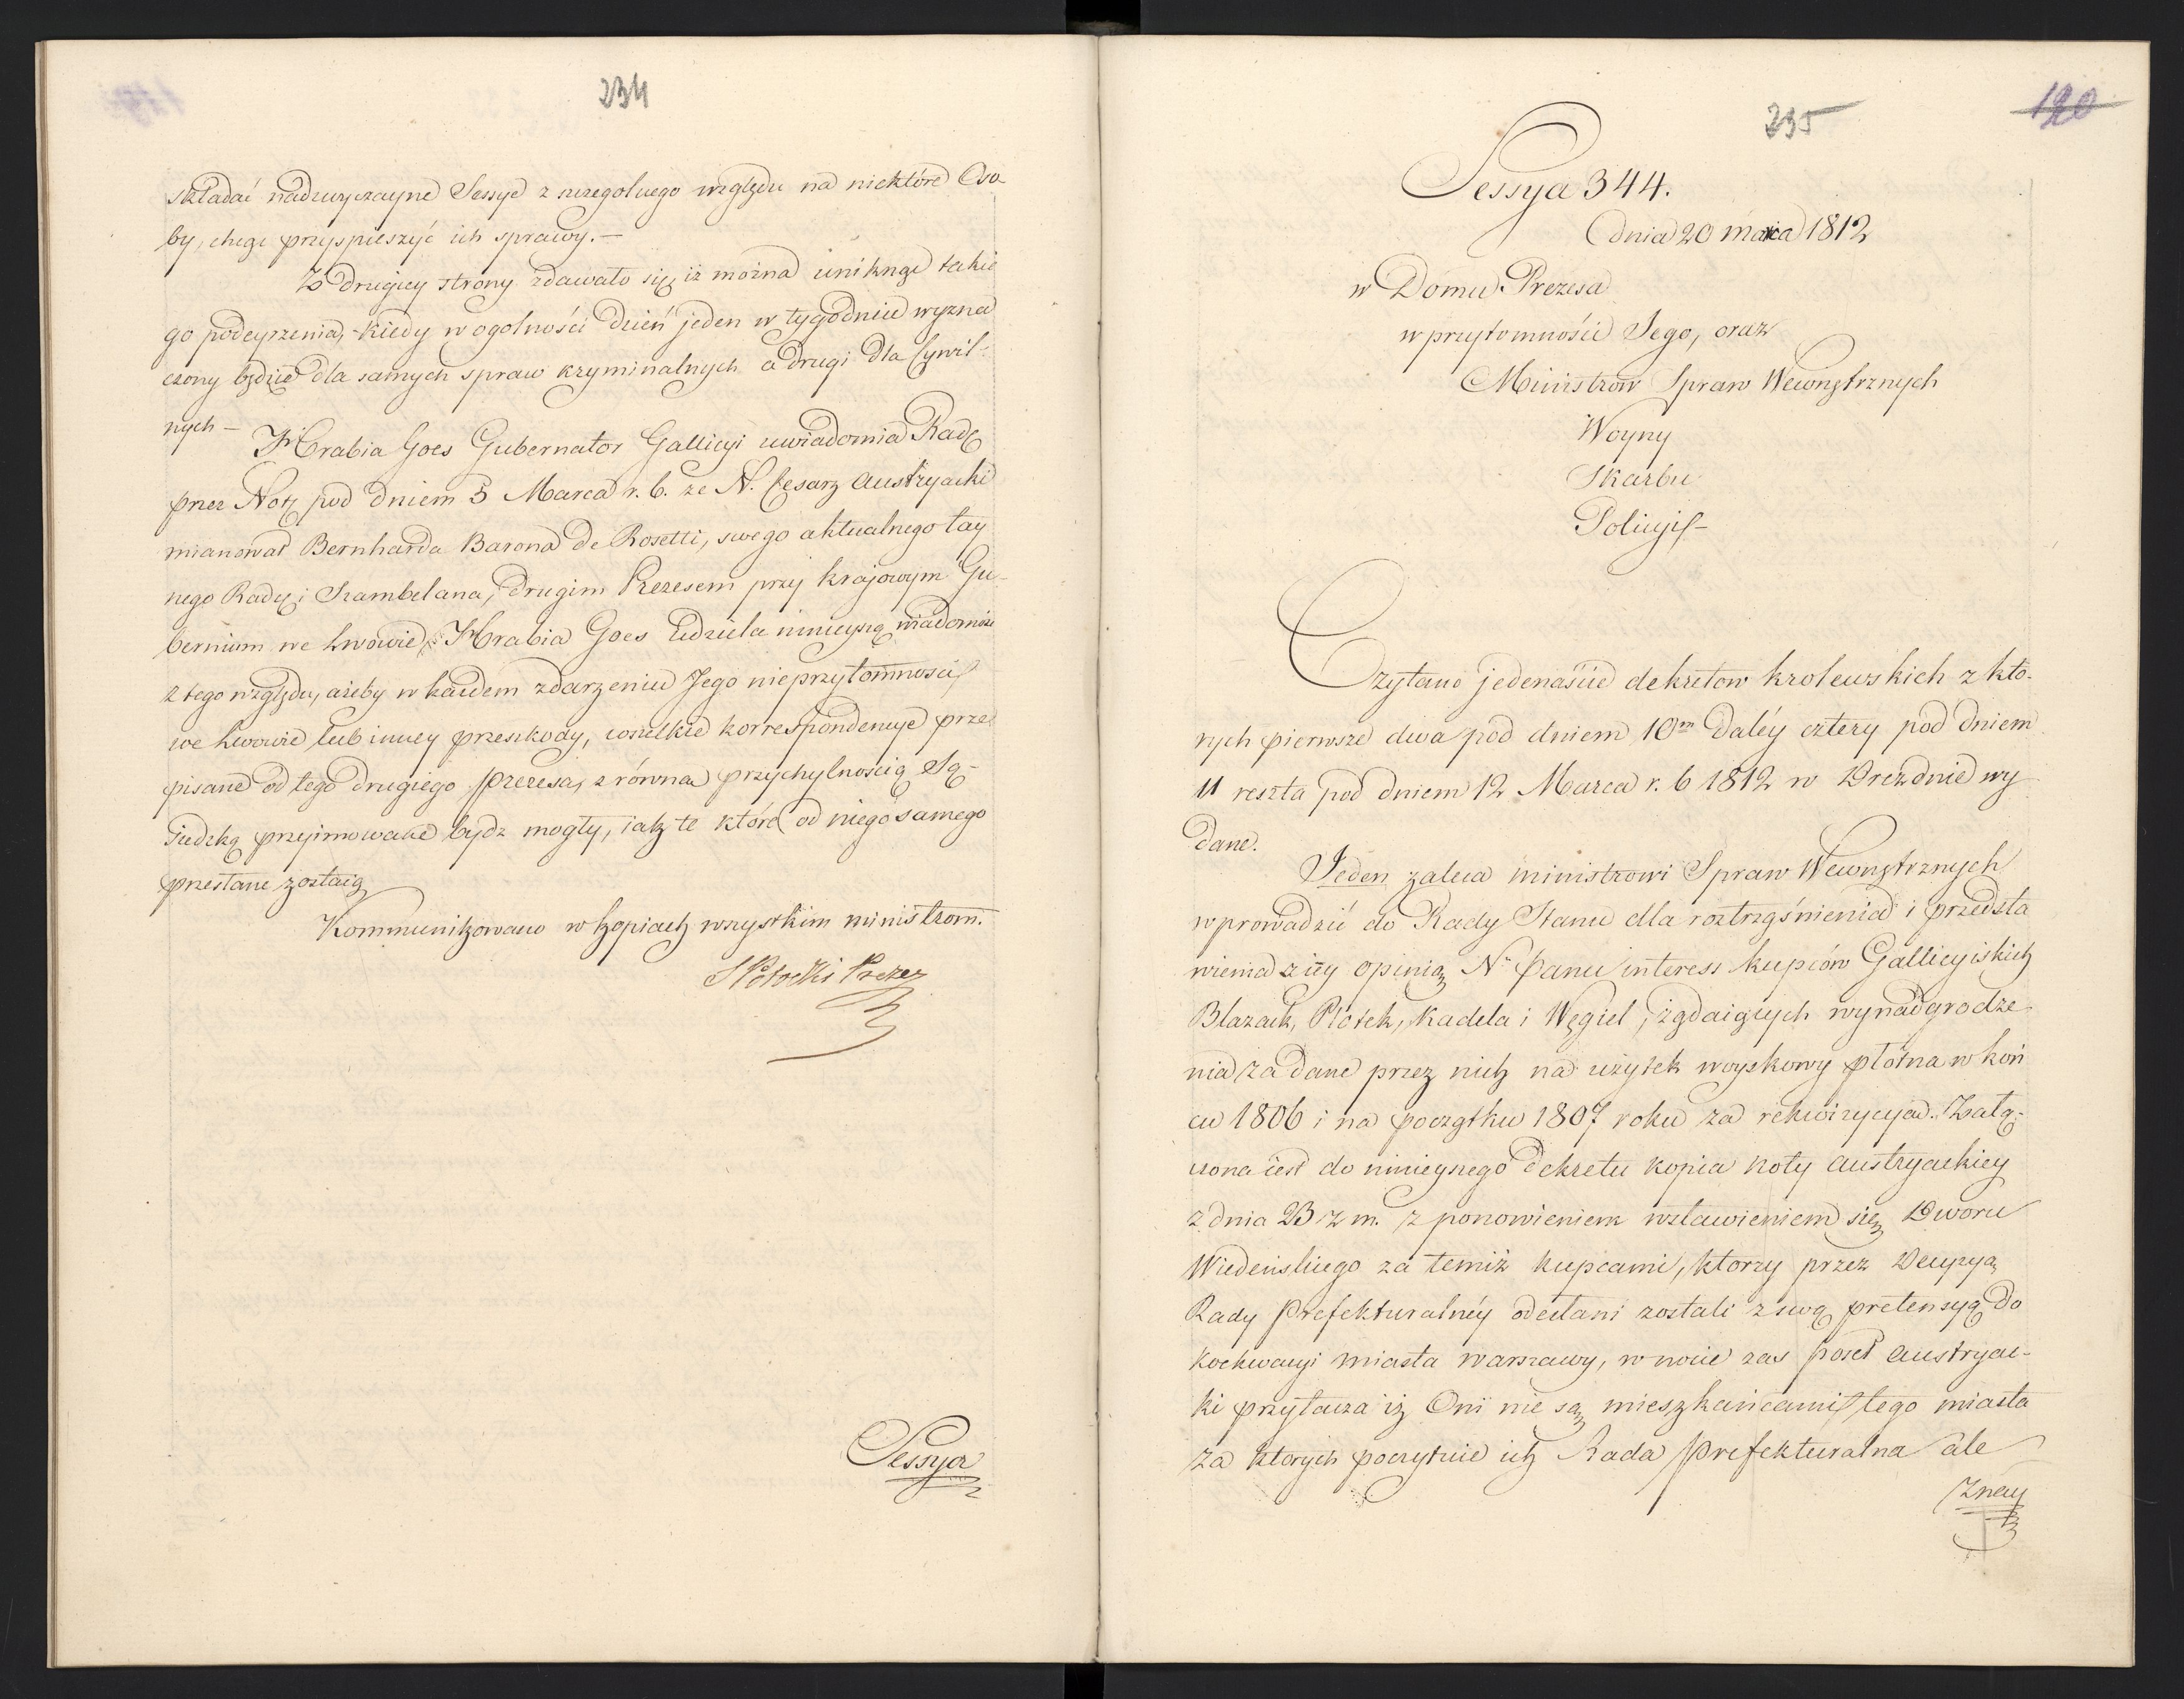 234
składać nadzwyczayne Sessye z szczegolnego względu na niektóre Oso-
by, chcąc przyspieszyć ich sprawy.—
Z drugiey strony zdawało się iż można uniknąć takie
go podeyrzenia, kiedy w ogolności dzień jeden w tygodniu wyzna
czony będzie dla samych spraw kryminalnych a drugi dla Cywil-
nych —
Hrabia Goes Gubernator Gallicyi uwiadomia Radę
przez Notę pod dniem 5 Marca r. b. że N. Cesarz Austryacki
mianował Bernharda Barona De Rosetti, swego aktualnego tay
nego Radcę i Szambelana, drugim Prezesem przy krajowym Gu-
bernium we Lwowie, Hrabia Goes udziela ninieyszą wiadomość
z tego względu, ażeby w każdem zdarzeniu Jego nieprzytomności
we Lwowie lub inney przeszkody, wszelkie korrespondencye prze
pisane od tego drugiego Prezesa, z równą przychylnością Są-
siedzką przejmowane bydz mogły, iak te które od niego samego
przesłane zostaią
Kommunikowano w kopiach wszystkim ministrom.
S Potocki Prezez
Sessya
235
120
Sessya 344.
Dnia 20 marca 1812
w Domu Prezesa
w przytomności Jego, oraz
Ministrow Spraw Wewnętrznych
Woyny
Skarbu
Policyi —
Czytano jedenaście dekretow krolewskich z kto-
rych pierwsze dwa pod dniem 10m daléy cztery pod dniem
11 reszta pod dniem 12 Marca r. b 1812 w Dreznie wy
dane.
Jeden zaleca ministrowi Spraw Wewnętrznych
wprowadzić do Rady Stanu dla roztrząśnienia i przedsta
wienia z iey opinią N. Panu interess kupców Gallicyiskich
Blazach, Płotek, Kadela i Węgiel, żądaiących wynadgrodze-
nia za dane przez nich na użytek woyskowy płótna w koń
cu 1806 i na początku 1807 roku za rekwizycyą. Załą-
czona iest do ninieyszego Dekretu kopia noty austryackiey
z dnia 23 z m. z ponowieniem wstawieniem się Dworu
Wiedeńskiego za temiż kupcami, ktorzy przez Decyzyą
Rady Prefekturalnéy odesłani zostali z swą pretensyą do
koekwacyi miasta warszawy, w nocie zas poseł austryac-
ki przytacza iż Oni nie są mieszkańcami tego miasta
za ktorych poczytuie ich Rada Prefekturalna ale